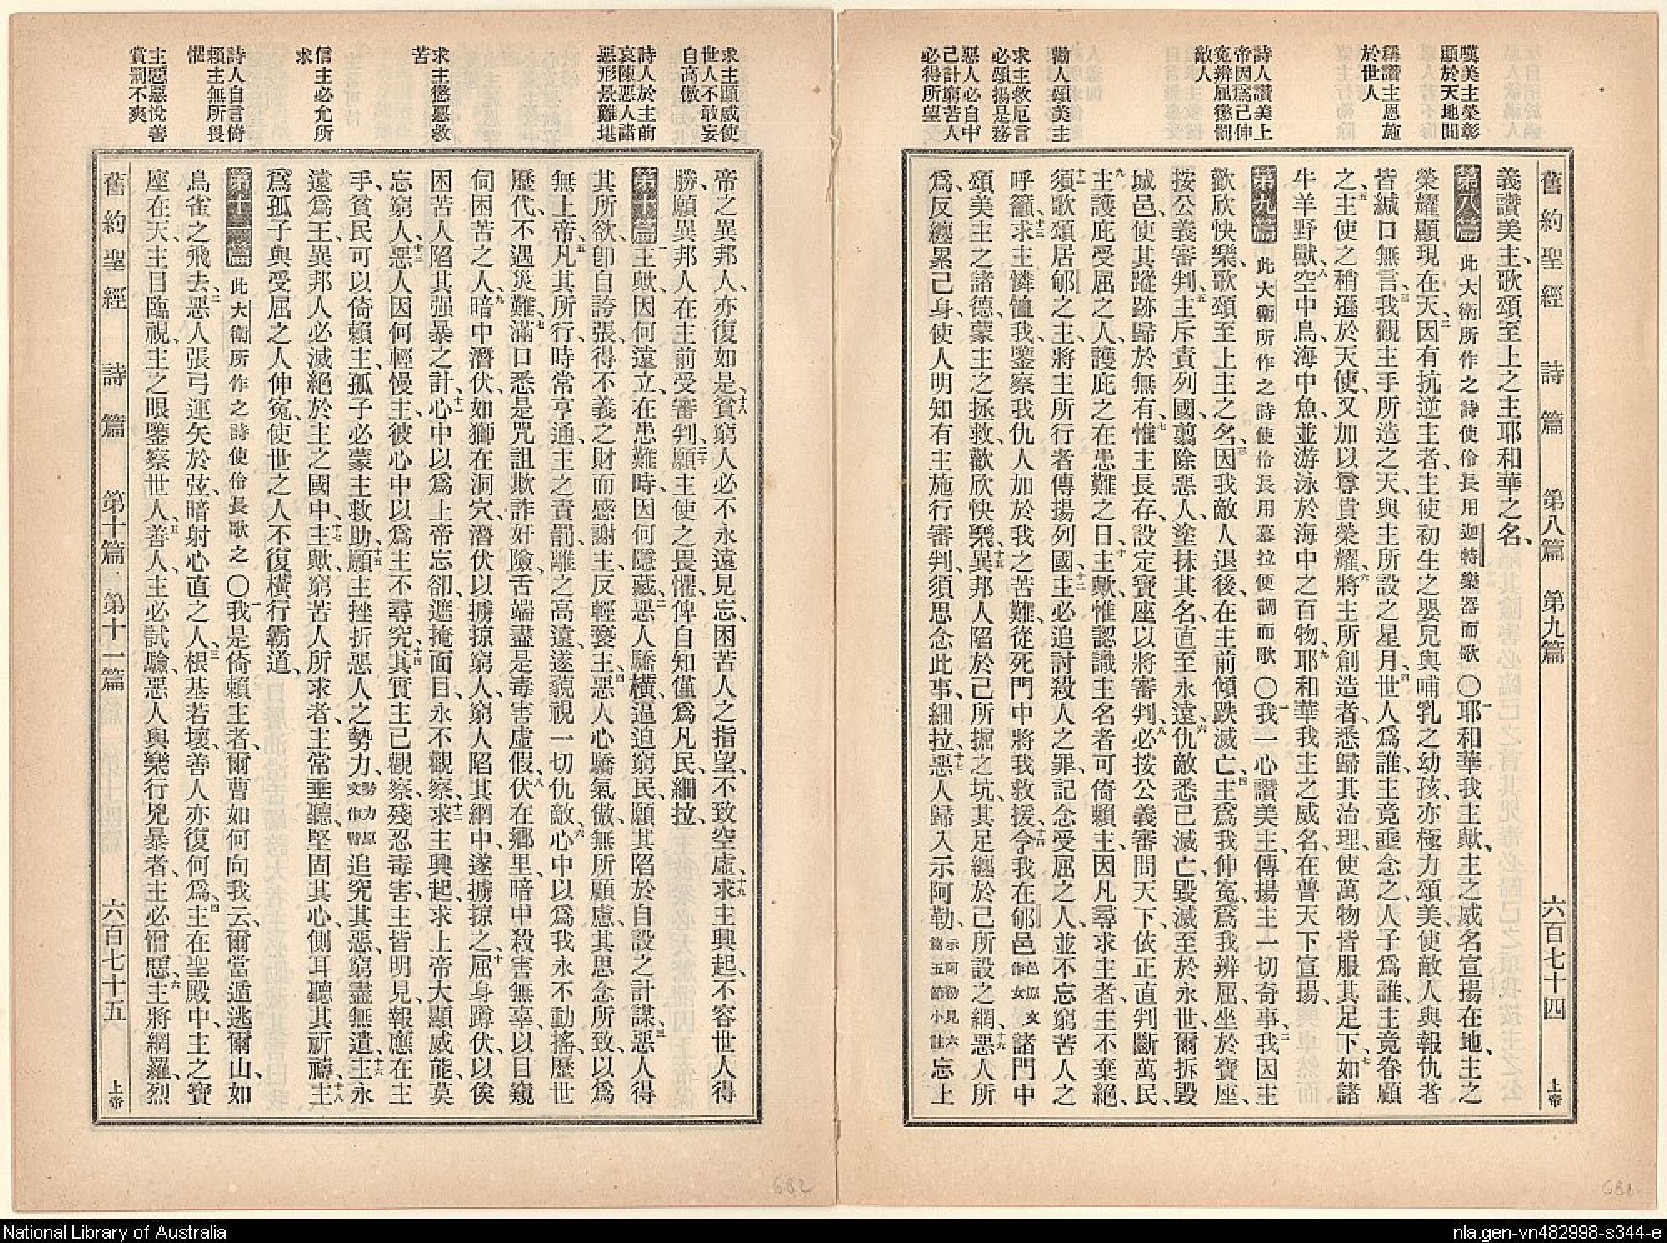 嘆美主榮彰
顯於天地間
稱讚主恩施
於世人
詩人讚美上
帝因爲己伸
寃辨屈懲罰
敵人
勸人頌美主
求主救厄言
必頌揚是務
惡人必自中
己計窮苦人
必得所望
舊約聖經 詩篇 第八篇 第九篇 六百七十四 上帝
義讚美主歌頌至上之主耶和華之名、
第八篇 此大衛所作之詩使伶長用迦特樂器而歌 〇一耶和華我主歟、主之威名宣揚在地、主之
榮耀顯現在天、二因有抗逆主者、主使初生之嬰兒與哺乳之幼孩、亦極力頌美、使敵人與報仇者
皆緘口無言、三我觀主手所造之天、與主所設之星月、四世人爲誰、主竟垂念之、人子爲誰、主竟眷顧
之、五主使之稍遜於天使、又加以尊貴榮耀、六將主所創造者、悉歸其治理、使萬物皆服其足下、七如諸
牛羊野獸、八空中鳥、海中魚、並游泳於海中之百物、九耶和華我主之威名、在普天下宣揚、
第九篇 此大衛所作之詩使伶長用慕拉便調而歌 〇一我一心讚美主、傳揚主一切奇事、二我因主
歡欣快樂、歌頌至上主之名、三因我敵人退後、在主前傾跌滅亡、四主爲我伸寃、爲我辨屈、坐於寶座、
按公義審判、五主斥責列國、翦除惡人、塗抹其名、直至永遠、六仇敵悉已滅亡、毀滅至於永世、爾拆毀
城邑、使其蹤跡歸於無有、七惟主長存、設定寶座、以將審判、八必按公義審問天下、依正直判斷萬民、
九主護庇受屈之人、護庇之在患難之日、十主歟、惟認識主名者可倚賴主、因凡尋求主者、主不棄絕、
十一須歌頌居郇之主、將主所行者傳揚列國、十二主必追討殺人之罪、記念受屈之人、並不忘窮苦人之
呼籲、十三求主憐恤我、鑒察我仇人加於我之苦難、從死門中將我救援、十四令我在郇邑 邑原文作女 諸門中
頌美主之諸德、蒙主之拯救、歡欣快樂、十五異邦人陷於己所掘之坑、其足纏於己所設之網、十六惡人所
爲、反纏累己身、使人明知有主施行審判、須思念此事、細拉、十七惡人歸入示阿勒、示阿勒見六篇五節小註 忘上
求主顯威使
世人不敢妄
自高傲
詩人於主前
哀陳惡人諸
惡形景難堪
求主懲惡救
苦
信主必允所
求
詩人自言倚
賴主無所畏
懼
主惡惡悅善
賞罰不爽
帝之異邦人、亦復如是、十八貧窮人必不永遠見忘、困苦人之指望、不致空虛、十九求主興起、不容世人得
勝、願異邦人在主前受審判、二十願主使之畏懼、俾自知僅爲凡民、細拉、
第十篇 一主歟、因何遠立、在患難時因何隱藏、二惡人驕橫、逼迫窮民、願其陷於自設之計謀、三惡人得
其所欲、卽自誇張、得不義之財而感謝主、反輕褻主、四惡人心驕氣傲、無所顧慮、其思念所致、以爲
無上帝、五凡其所行、時常亨通、主之責罰、離之高遠、遂藐視一切仇敵、六心中以爲我永不動搖、歷世
歷代、不遇災難、七滿口悉是咒詛欺詐奸險、舌端盡是毒害虛假、八伏在鄉里、暗中殺害無辜、以目窺
伺困苦之人、九暗中潛伏、如獅在洞穴、潛伏以擄掠窮人、窮人陷其網中、遂擄掠之、十屈身蹲伏、以俟
困苦人陷其强暴之計、十一心中以爲上帝忘卻、遮掩面目、永不觀察、十二求主興起、求上帝大顯威能、莫
忘窮人、十三惡人因何輕慢主、彼心中以爲主不尋究、十四其實主已觀察、殘忍毒害、主皆明見、報應在主
手、貧民可以倚賴主、孤子必蒙主救助、十五願主挫折惡人之勢力、勢力原文作臂 追究其惡、窮盡無遺、十六主永
遠爲王、異邦人必滅絕於主之國中、十七主歟、窮苦人所求者、主常垂聽、堅固其心、側耳聽其祈禱、十八主
爲孤子與受屈之人伸寃、使世之人不復橫行霸道、
第十一篇 此大衛所作之詩使伶長歌之 〇一我是倚賴主者、爾曹如何向我云、爾當遁逃爾山、如
鳥雀之飛去、二惡人張弓、運矢於弦、暗射心直之人、三根基若壞、善人亦復何爲、四主在聖殿中、主之寶
座在天、主目臨視、主之眼鑒察世人、五善人主必試驗、惡人與樂行兇暴者、主必憎惡、六主將網羅、烈
舊約聖經 詩篇 第十篇 第十一篇 六百七十五 上帝
682
681
National Library of Australia
nla.gen-vn482998-s344-e